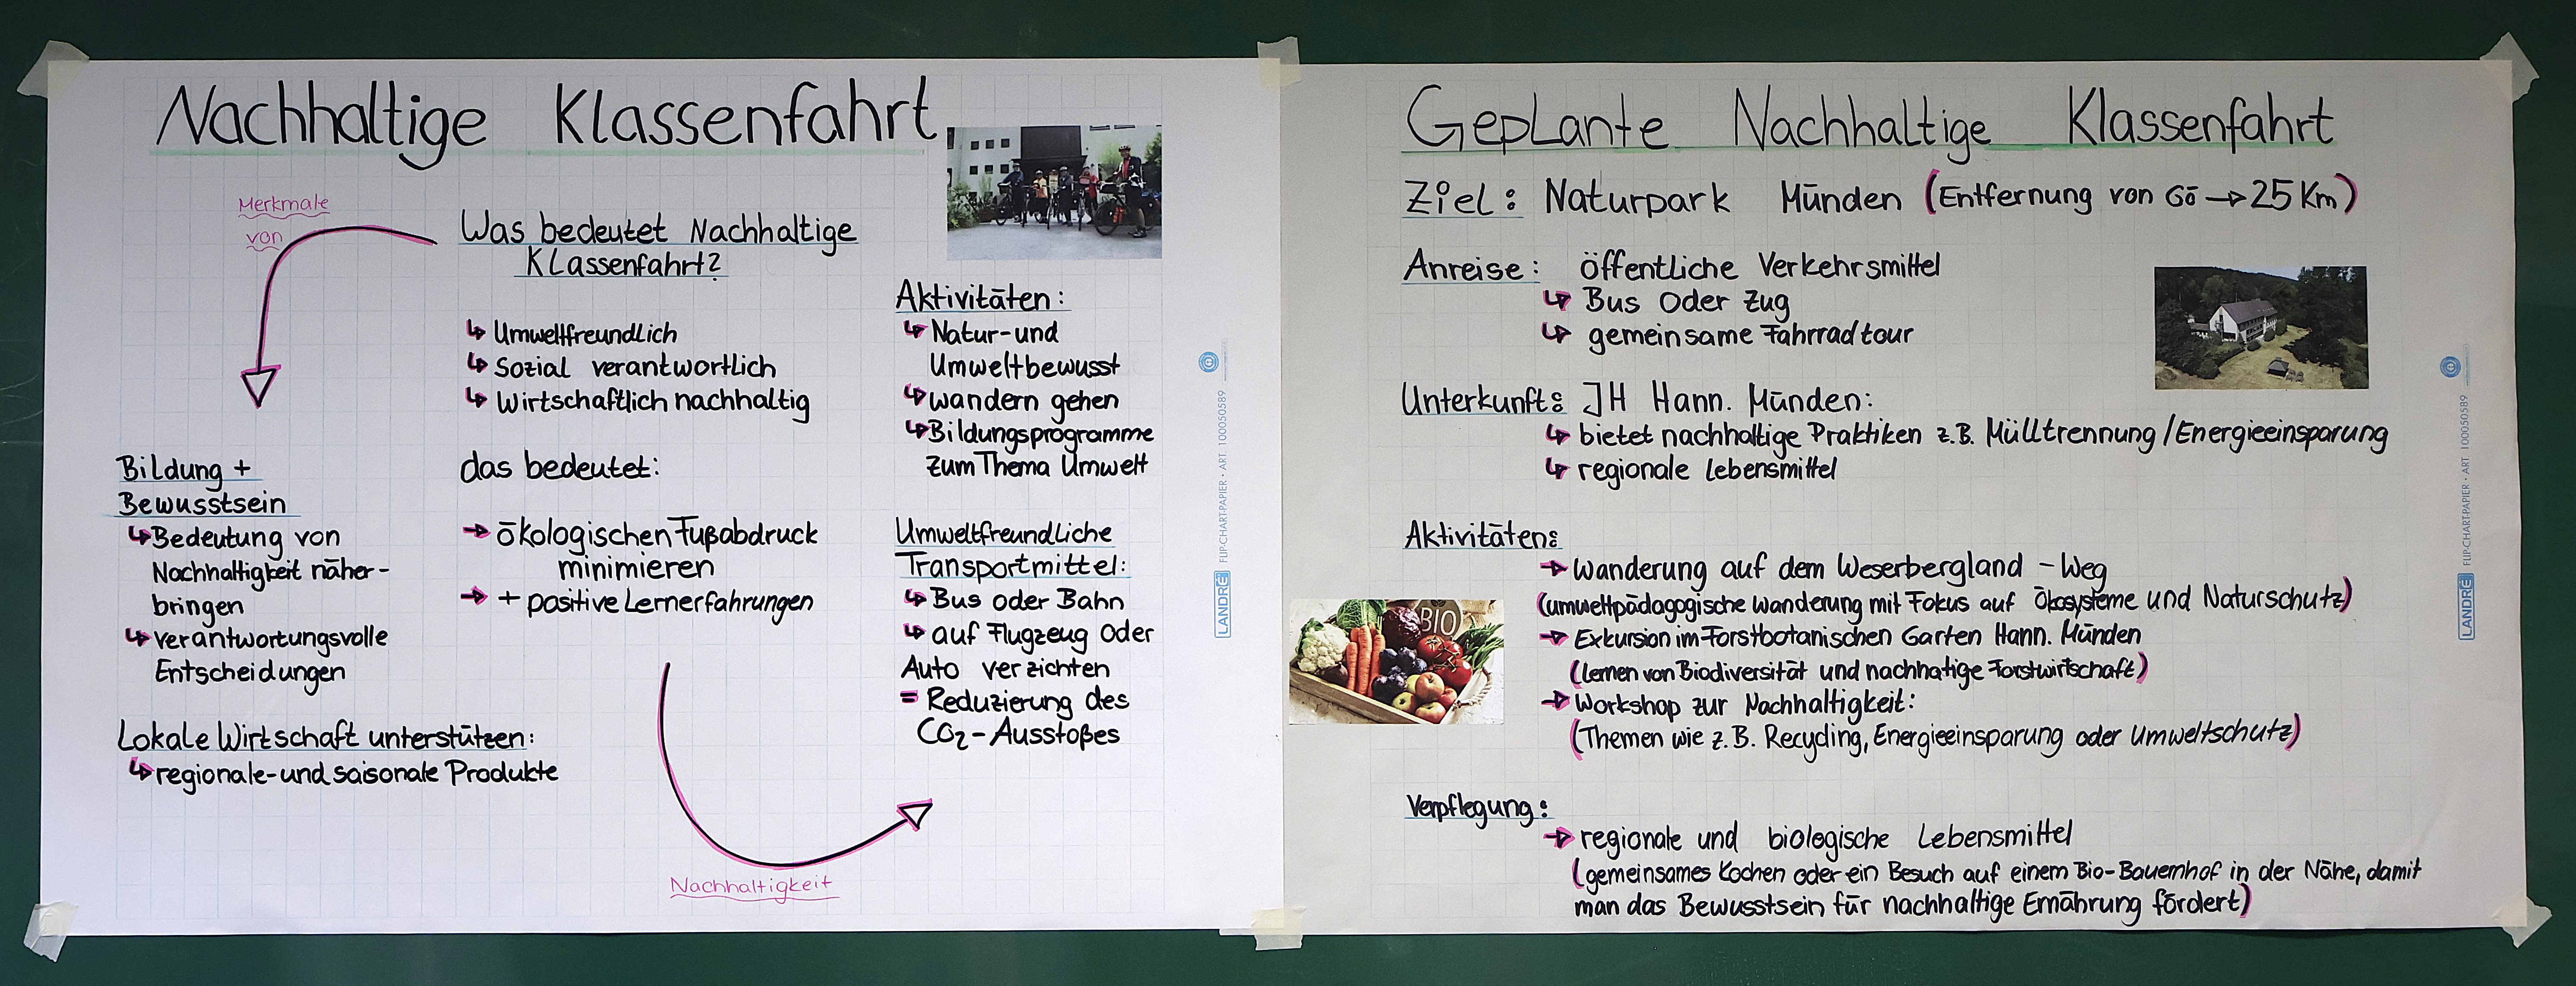 Nachhaltige Klassenfahrt
Merkmale
von
Was bedeutet Nachhaltige
Klassenfahrt?
↳ Umweltfreundlich
↳ Sozial verantwortlich
↳ Wirtschaftlich nachhaltig
das bedeutet:
→ ökologischen Fußabdruck
minimieren
→ + positive Lernerfahrungen
Bildung +
Bewusstsein
↳ Bedeutung von
Nachhaltigkeit näher-
bringen
↳ verantwortungsvolle
Entscheidungen
Lokale Wirtschaft unterstützen:
↳ regionale- und saisonale Produkte
Nachhaltigkeit
Aktivitäten:
↳ Natur- und
Umweltbewusst
↳ wandern gehen
↳ Bildungsprogramme
zum Thema Umwelt
Umweltfreundliche
Transportmittel:
↳ Bus oder Bahn
↳ auf Flugzeug oder
Auto verzichten
= Reduzierung des
CO₂-Ausstoßes
LANDRÉ FLIP-CHART-PAPIER • ART. 100050589
Geplante Nachhaltige Klassenfahrt
Ziel: Naturpark Münden (Entfernung von Gö → 25 Km)
Anreise: öffentliche Verkehrsmittel
↳ Bus oder Zug
↳ gemeinsame Fahrradtour
Unterkunft: JH Hann. Münden:
↳ bietet nachhaltige Praktiken z.B. Mülltrennung/Energieeinsparung
↳ regionale Lebensmittel
Aktivitäten:
→ Wanderung auf dem Weserbergland-Weg
(umweltpädagogische Wanderung mit Fokus auf Ökosysteme und Naturschutz)
→ Exkursion im Forstbotanischen Garten Hann. Münden
(Lernen von Biodiversität und nachhatige Forstwirtschaft)
→ Workshop zur Nachhaltigkeit:
(Themen wie z.B. Recycling, Energieeinsparung oder Umweltschutz)
BIO
Verpflegung:
→ regionale und biologische Lebensmittel
(gemeinsames Kochen oder ein Besuch auf einem Bio-Bauernhof in der Nähe, damit
man das Bewusstsein für nachhaltige Ernährung fördert)
LANDRÉ FLIP-CHART-PAPIER • ART. 100050589